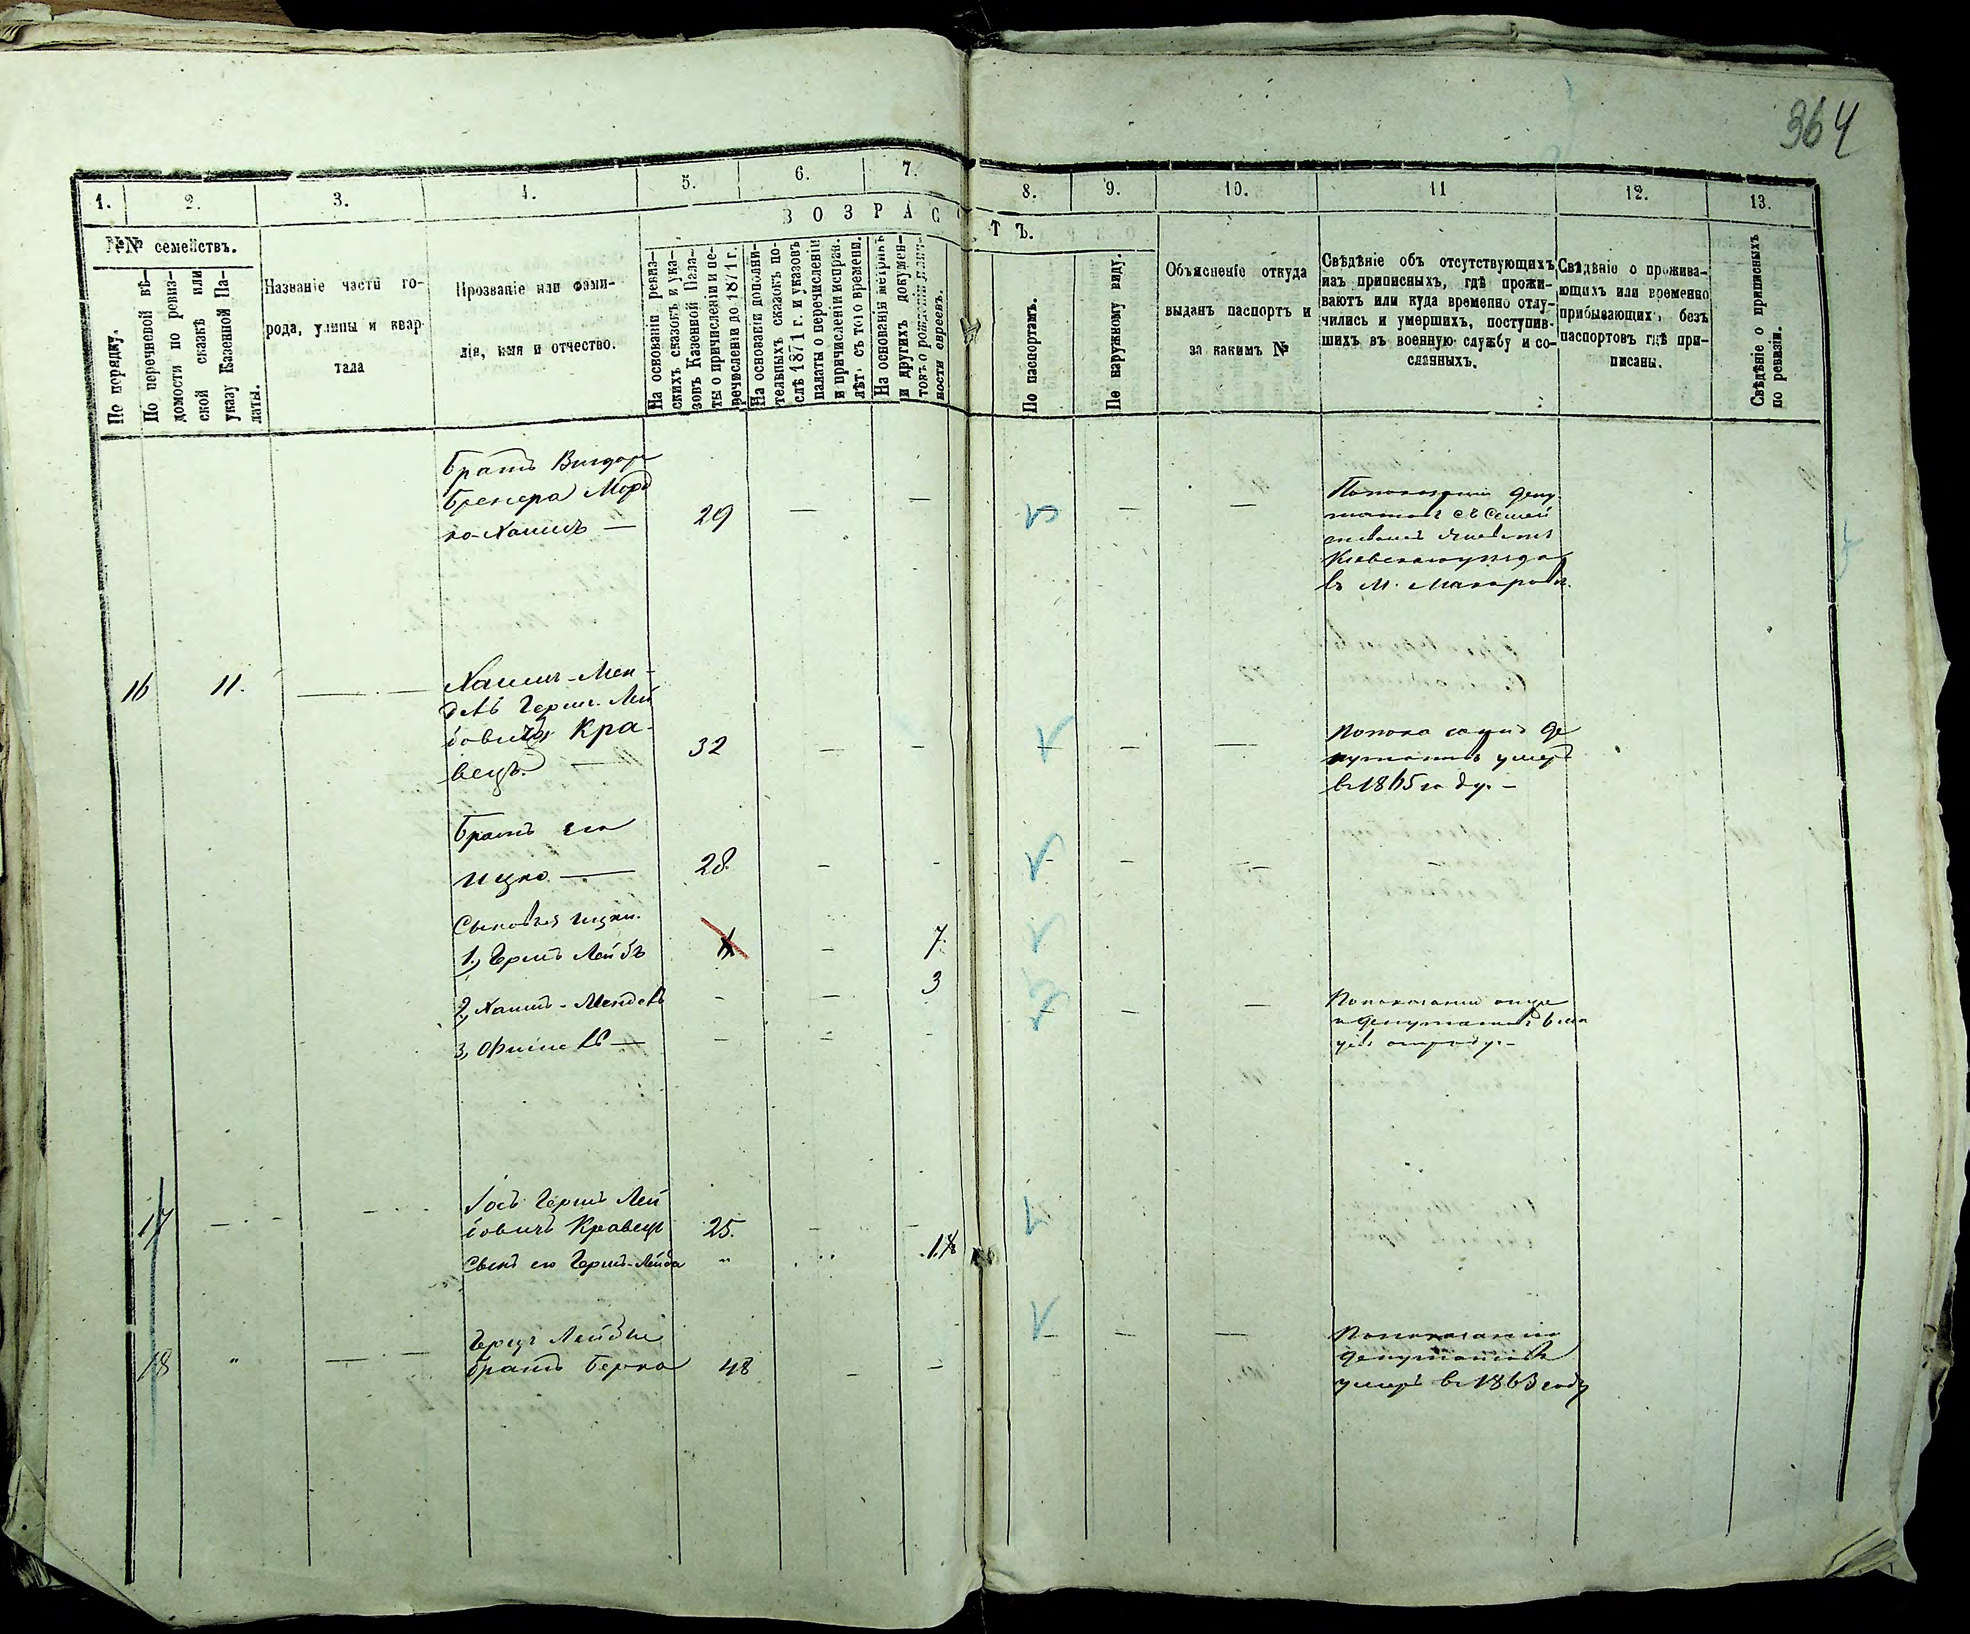 364
1.
2.
3.
4.
5.
6.
7.
8.
9.
10.
11
12.
13.
ВОЗРАСТЪ.
№№ семействъ.
По порядку.
По перечневой вѣ-
домости по ревиз-
ской сказкѣ или
указу Казенной Па-
латы.
Названіе части го-
рода, улицы и квар
тала
Прозваніе или фами-
лія, имя и отчество.
На основаніи ревиз-
скихъ сказокъ и ука-
зовъ Казенной Пала-
ты о причисленіи и пе-
речисленіи до 1871 г.
На основаніи дополни-
тельныхъ сказокъ по-
слѣ 1871 г. и указовъ
палаты о перечисленіи
и причисленіи исправ.
лѣт. съ того времени.
На основаніи метрикъ
и другихъ докумен-
товъ о рожденіи
ности евреевъ.
По паспортамъ.
По наружному виду.
Объясненіе откуда
выданъ паспортъ и
за какимъ №
Свѣдѣніе объ отсутствующихъ
изъ приписныхъ, гдѣ прожи-
ваютъ или куда временно отлу-
чились и умершихъ, поступив-
шихъ въ военную службу и со-
сланныхъ.
Свѣдѣніе о прожива-
ющихъ или временно
прибывающихъ, безъ
паспортовъ гдѣ при-
писаны.
Свѣдѣніе о приписныхъ
по ревизіи.
братъ Вигдора
БренераМорд
ко-Хаимъ — 29 — —
По показанію депу-
татовъ съ семей
ствомъ
Кіевскаго уѣзда
въ М. Макаровѣ.
16 11. — Хаимъ-Мен-
дель Герш. Лей
бовичъ Кра-
вецъ. — 32 — —
По показанію де
путатовъ умеръ
в 1865 году. —
Братъ его
Ицко — 28. — —
Сыновья Ицки.
1, Гершъ Лейбъ — 7.
2, Хаимъ-Мендель — — 3
3, Фишель —
По показанію
и депутатовъ
17 — Іосъ Гершъ Лей
бовичъ Кравецъ 25. — —
Сынъ его Гершъ-Лейба "
18 " — Герш Лейбы
братъ Берко 48 — —
По показанію
депутатовъ
умеръ в 1863 году